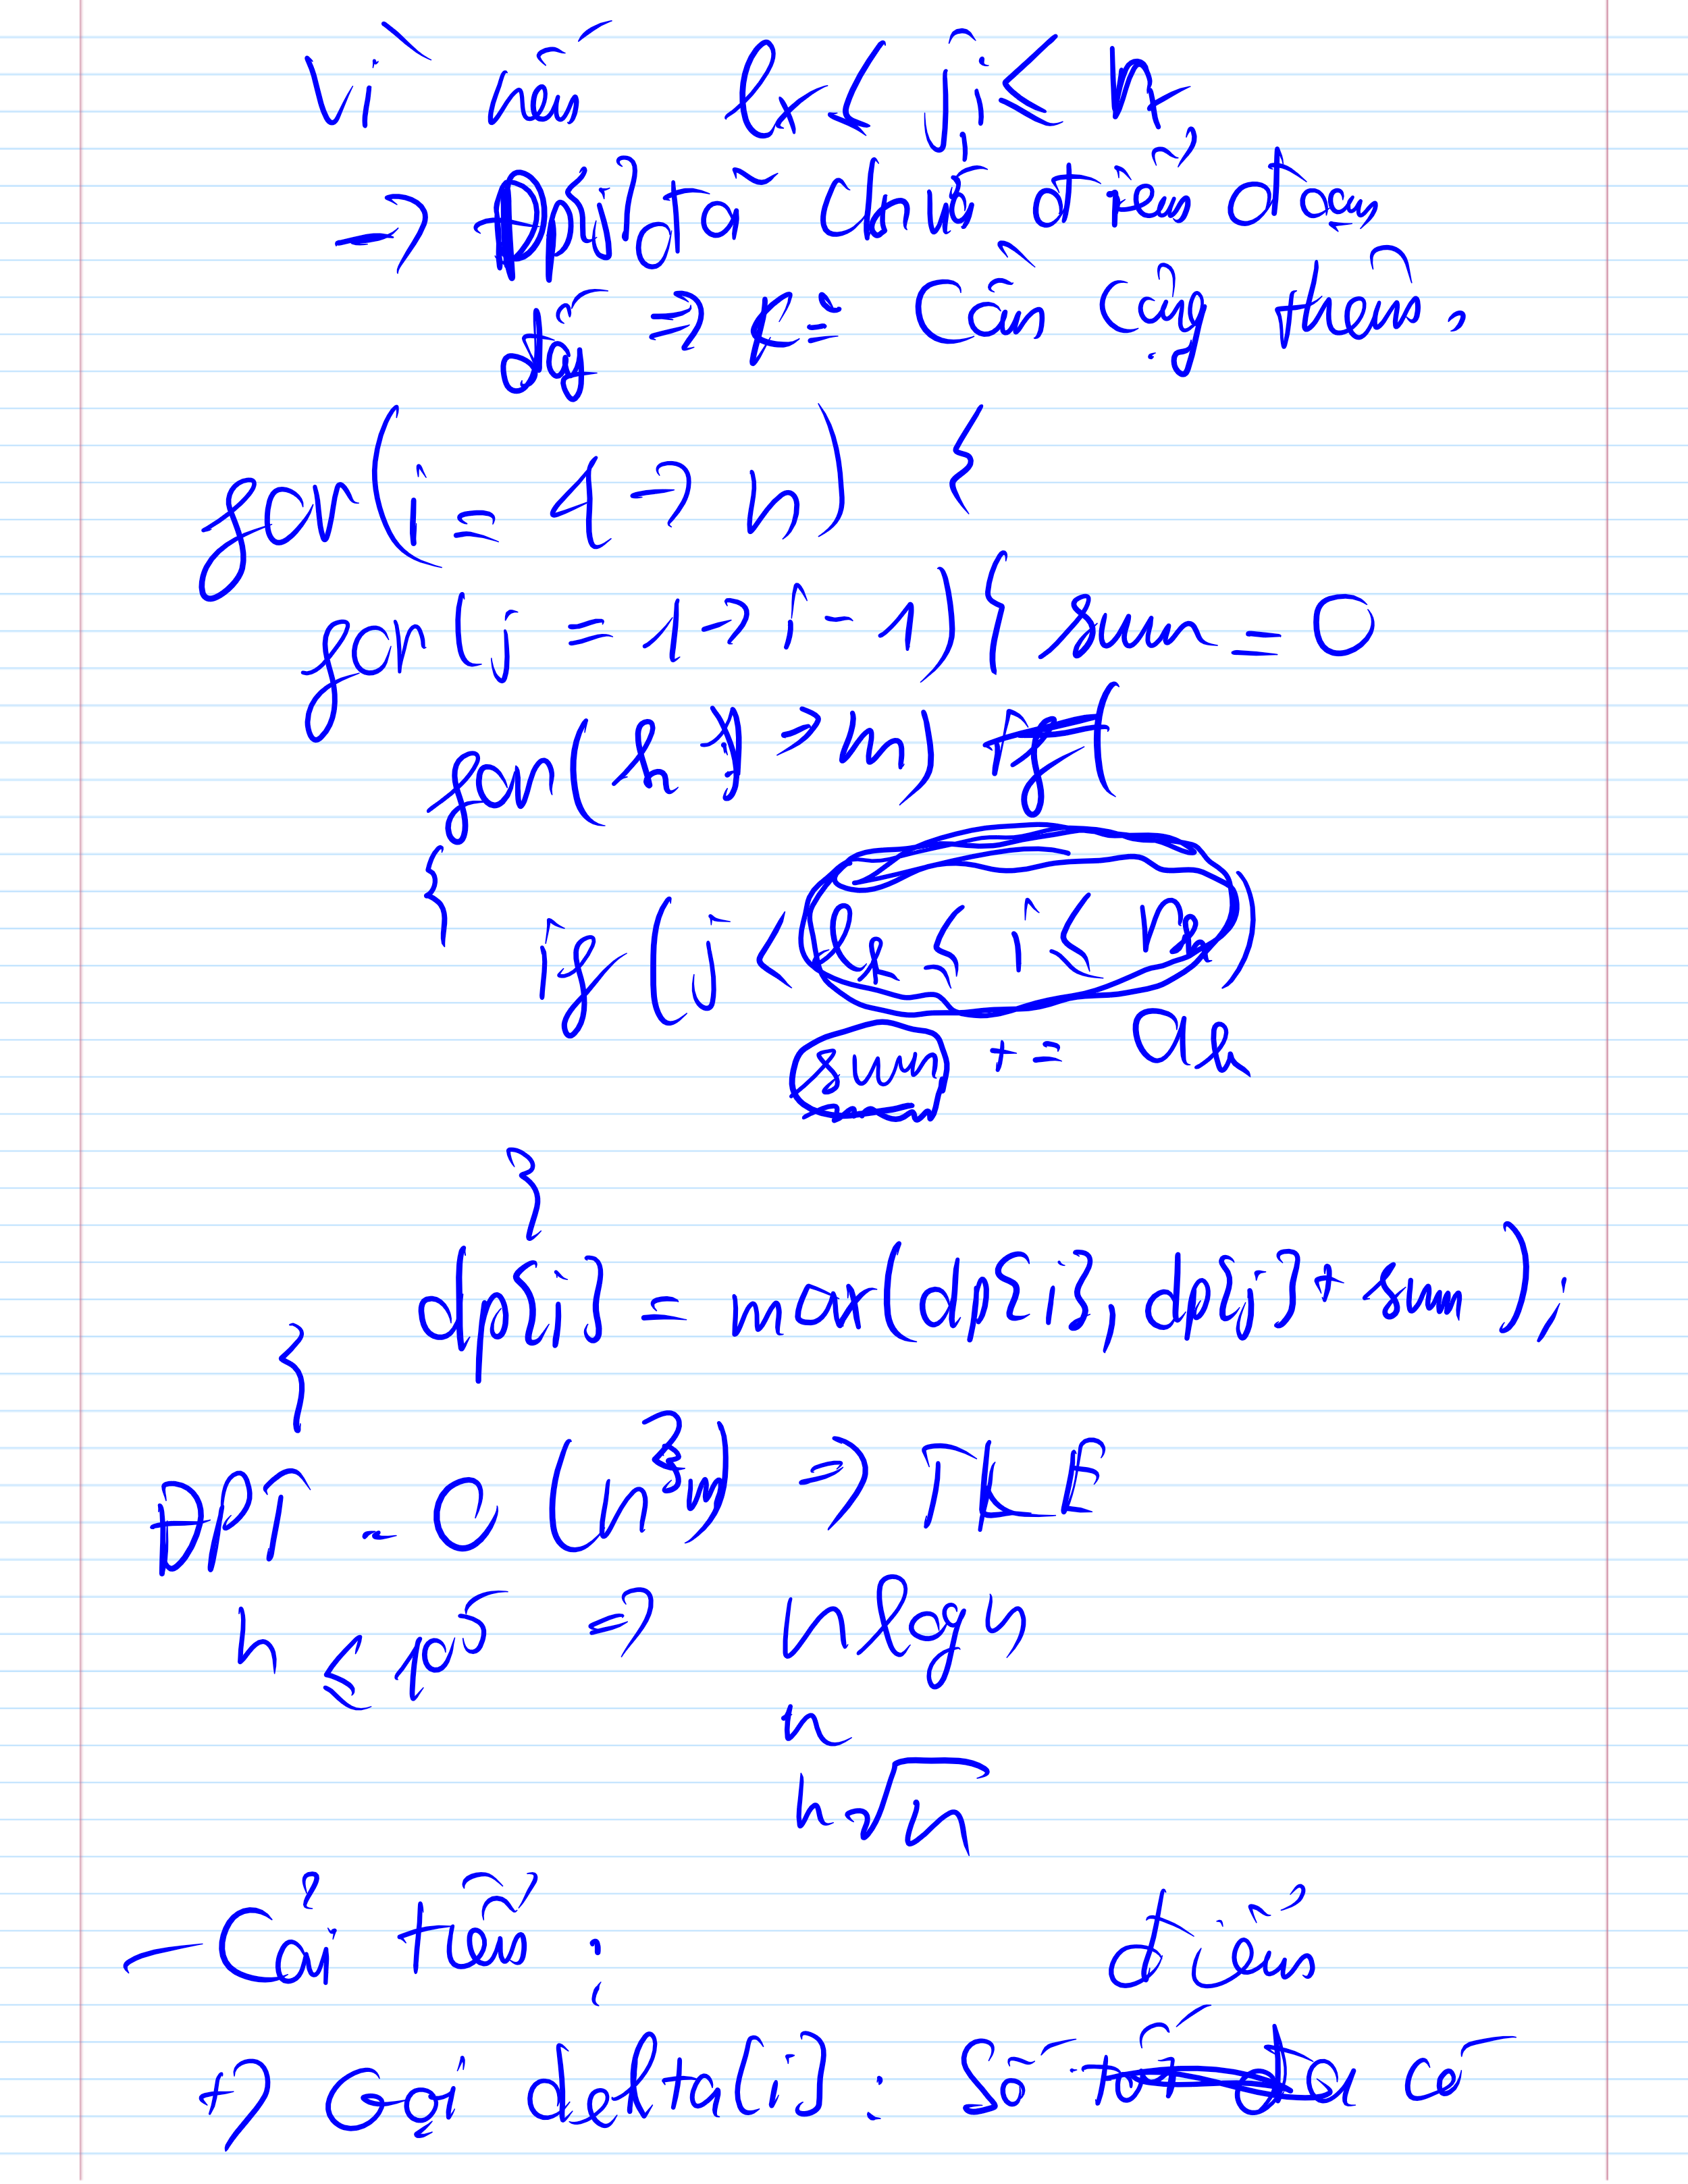 Vì nếu lₖ ≤ j, i ≤ rₖ
→ Dp[j] đã chứa điểm đoạn
đấy ⇒ k= cần cộng thêm.
for(i = 1 → n) {
for(j = 1 → i - 1) { sum = 0
for(k → m)
{
if (j < lₖ ≤ i ≤ rₖ)
sum += aₖ
}
dp[i] = max(dp[i], dp[j] + sum);
}
ĐPT - O(n²m) ⇒ TLE
n ≤ 10⁵ ⇒ nlogn
n
n√n
- Cải tiến:
+) Gọi delta[i]: Số điểm có